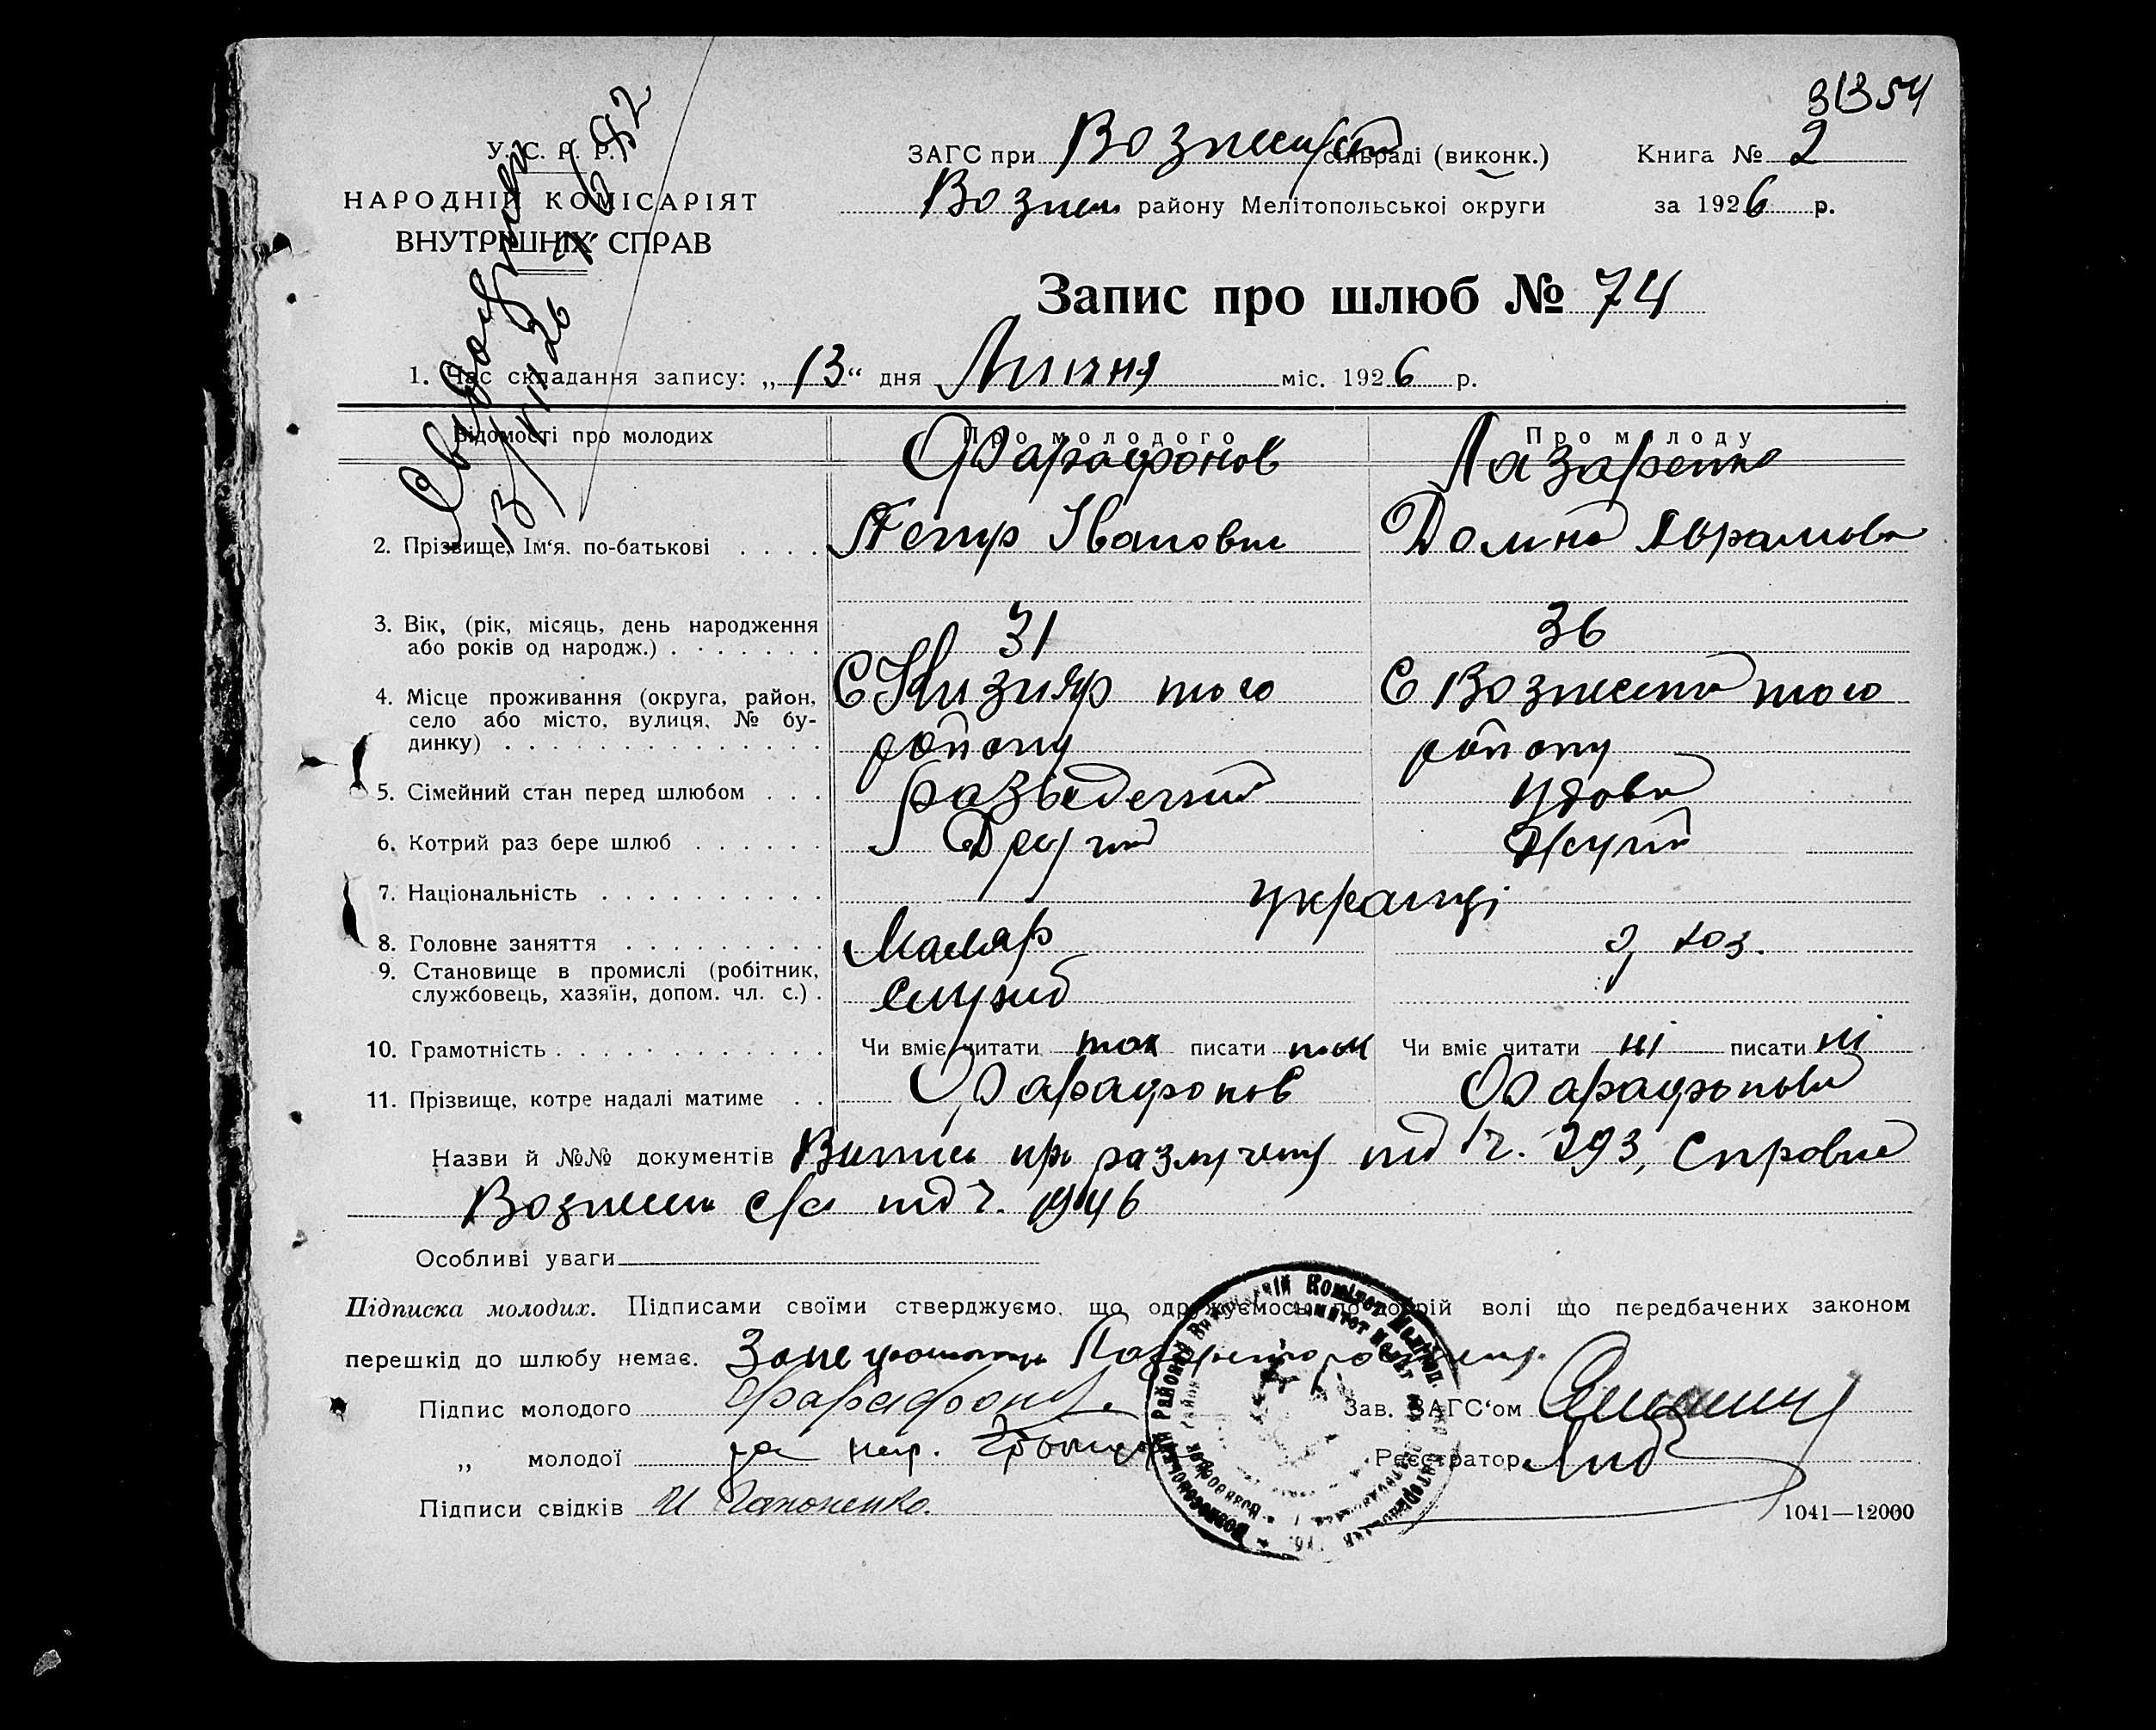 31354
У. С. Р. Р.
НАРОДНІЙ КОМІСАРІЯТ
ВНУТРІШНІХ СПРАВ
ЗАГС при сільраді (виконк.) Книга № 2
Вознес району Мелітопольської округи за 1926 р.
Запис про шлюб № 74
1. Час складання запису: „13“ дня Липня міс. 1926 р.
Відомості про молодих Про молодого Про молоду
Фарафонов Лазаренко
2. Прізвище, Ім‘я. по-батькові Петр Іванович Домна
3. Вік, (рік, місяць, день народження 31 36
або років од народж.)
4. Місце проживання (округа, район, С Кизияр того С Вознесенка того
село або місто, вулиця, № бу-
динку) району району
5. Сімейний стан перед шлюбом разведений удова
6. Котрий раз бере шлюб Другий Другий
7. Національність україці
8. Головне заняття Маляр хоз.
9. Становище в промислі (робітник,
службовець, хазяїн, допом. чл. с.) служб
10. Грамотність Чи вміє читати так писати так Чи вміє читати ні писати ні
11. Прізвище, котре надалі матиме Фарафонов Фарафонова
Назви й №№ документів Випис про разлучену під ч. 293, Справка
Вознесен с/с під ч. 1946
Особливі уваги
Підписка молодих. Підписами своїми стверджуємо, що одружуємось по добрій волі що передбачених законом
перешкід до шлюбу немає.
Підпис молодого Фарафонов Зав. ЗАГС‘ом
„ молодої за неп. Реєстратор
Підписи свідків И Гапоненко.
1041—12000